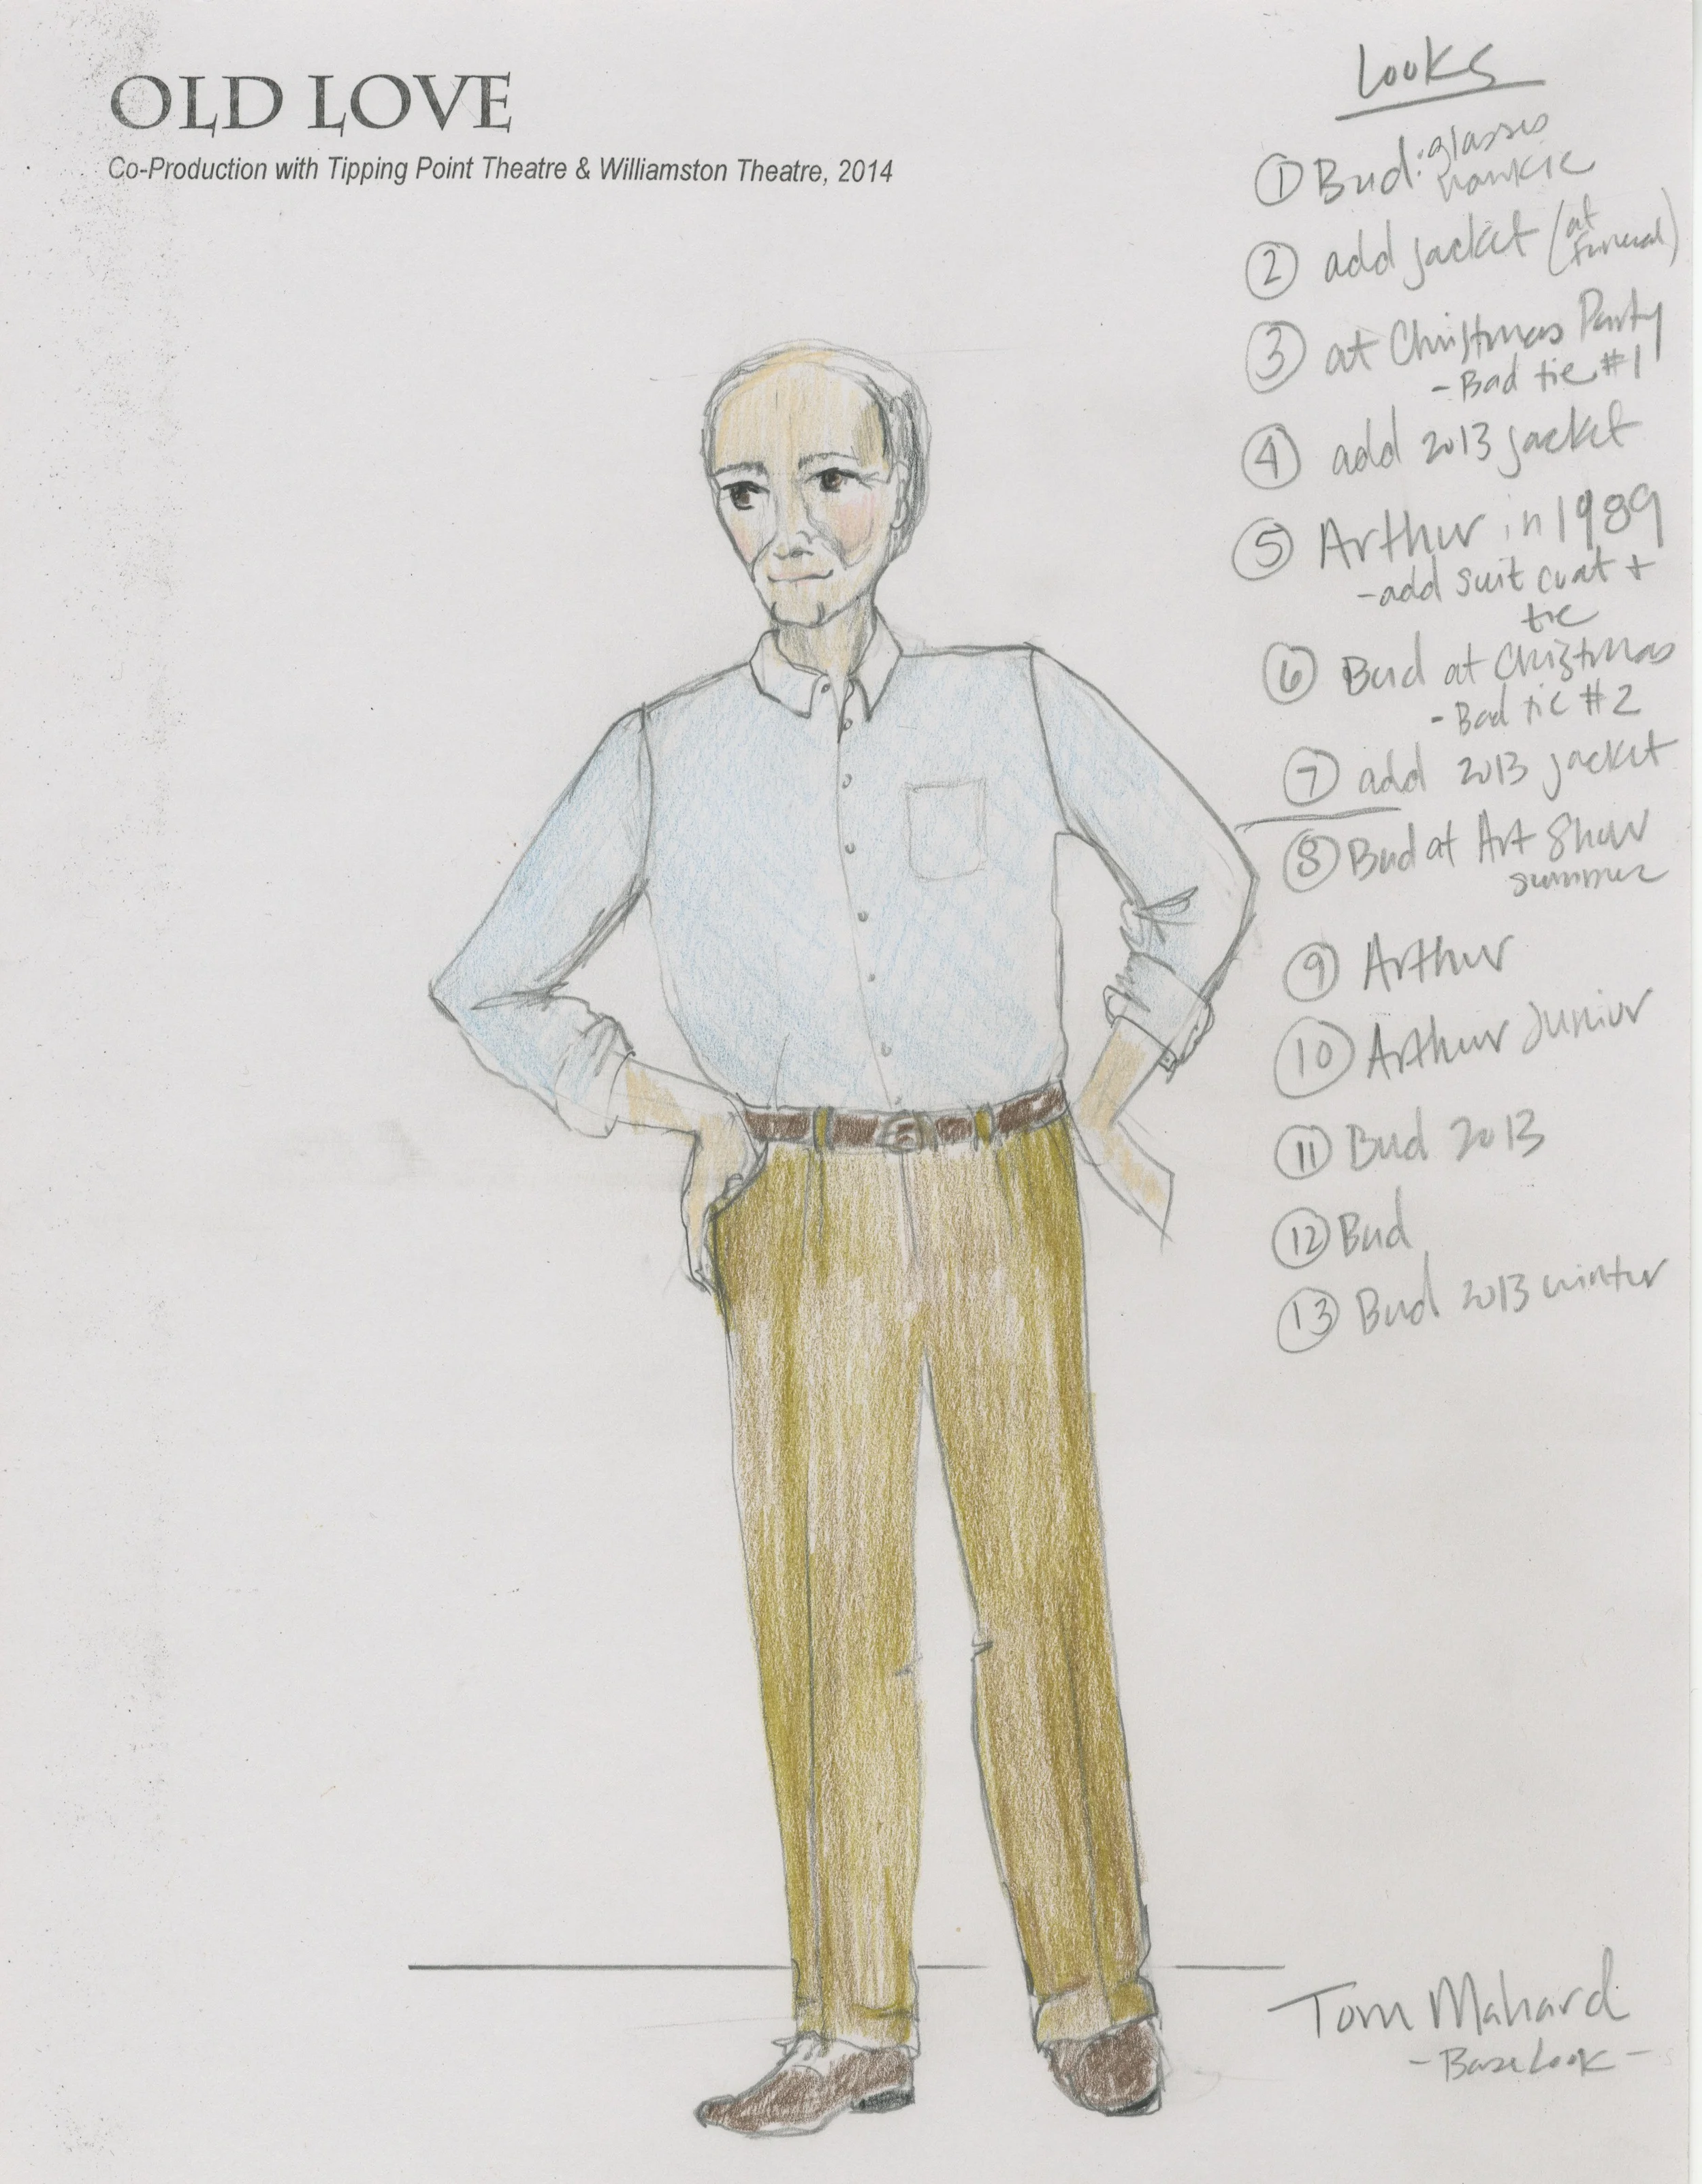 OLD LOVE
Co-Production with Tipping Point Theatre & Williamston Theatre, 2014
Looks
① Bud: glasses
hankie
② add jacket (at
funeral)
③ at Christmas Party
- Bad tie #1
④ add 2013 jacket
⑤ Arthur in 1989
- add suit coat +
tie
⑥ Bud at Christmas
- Bad tie #2
⑦ add 2013 jacket
⑧ Bud at Art Show
summer
⑨ Arthur
⑩ Arthur Junior
⑪ Bud 2013
⑫ Bud
⑬ Bud 2013 winter
Tom Mahard
- Base Look -